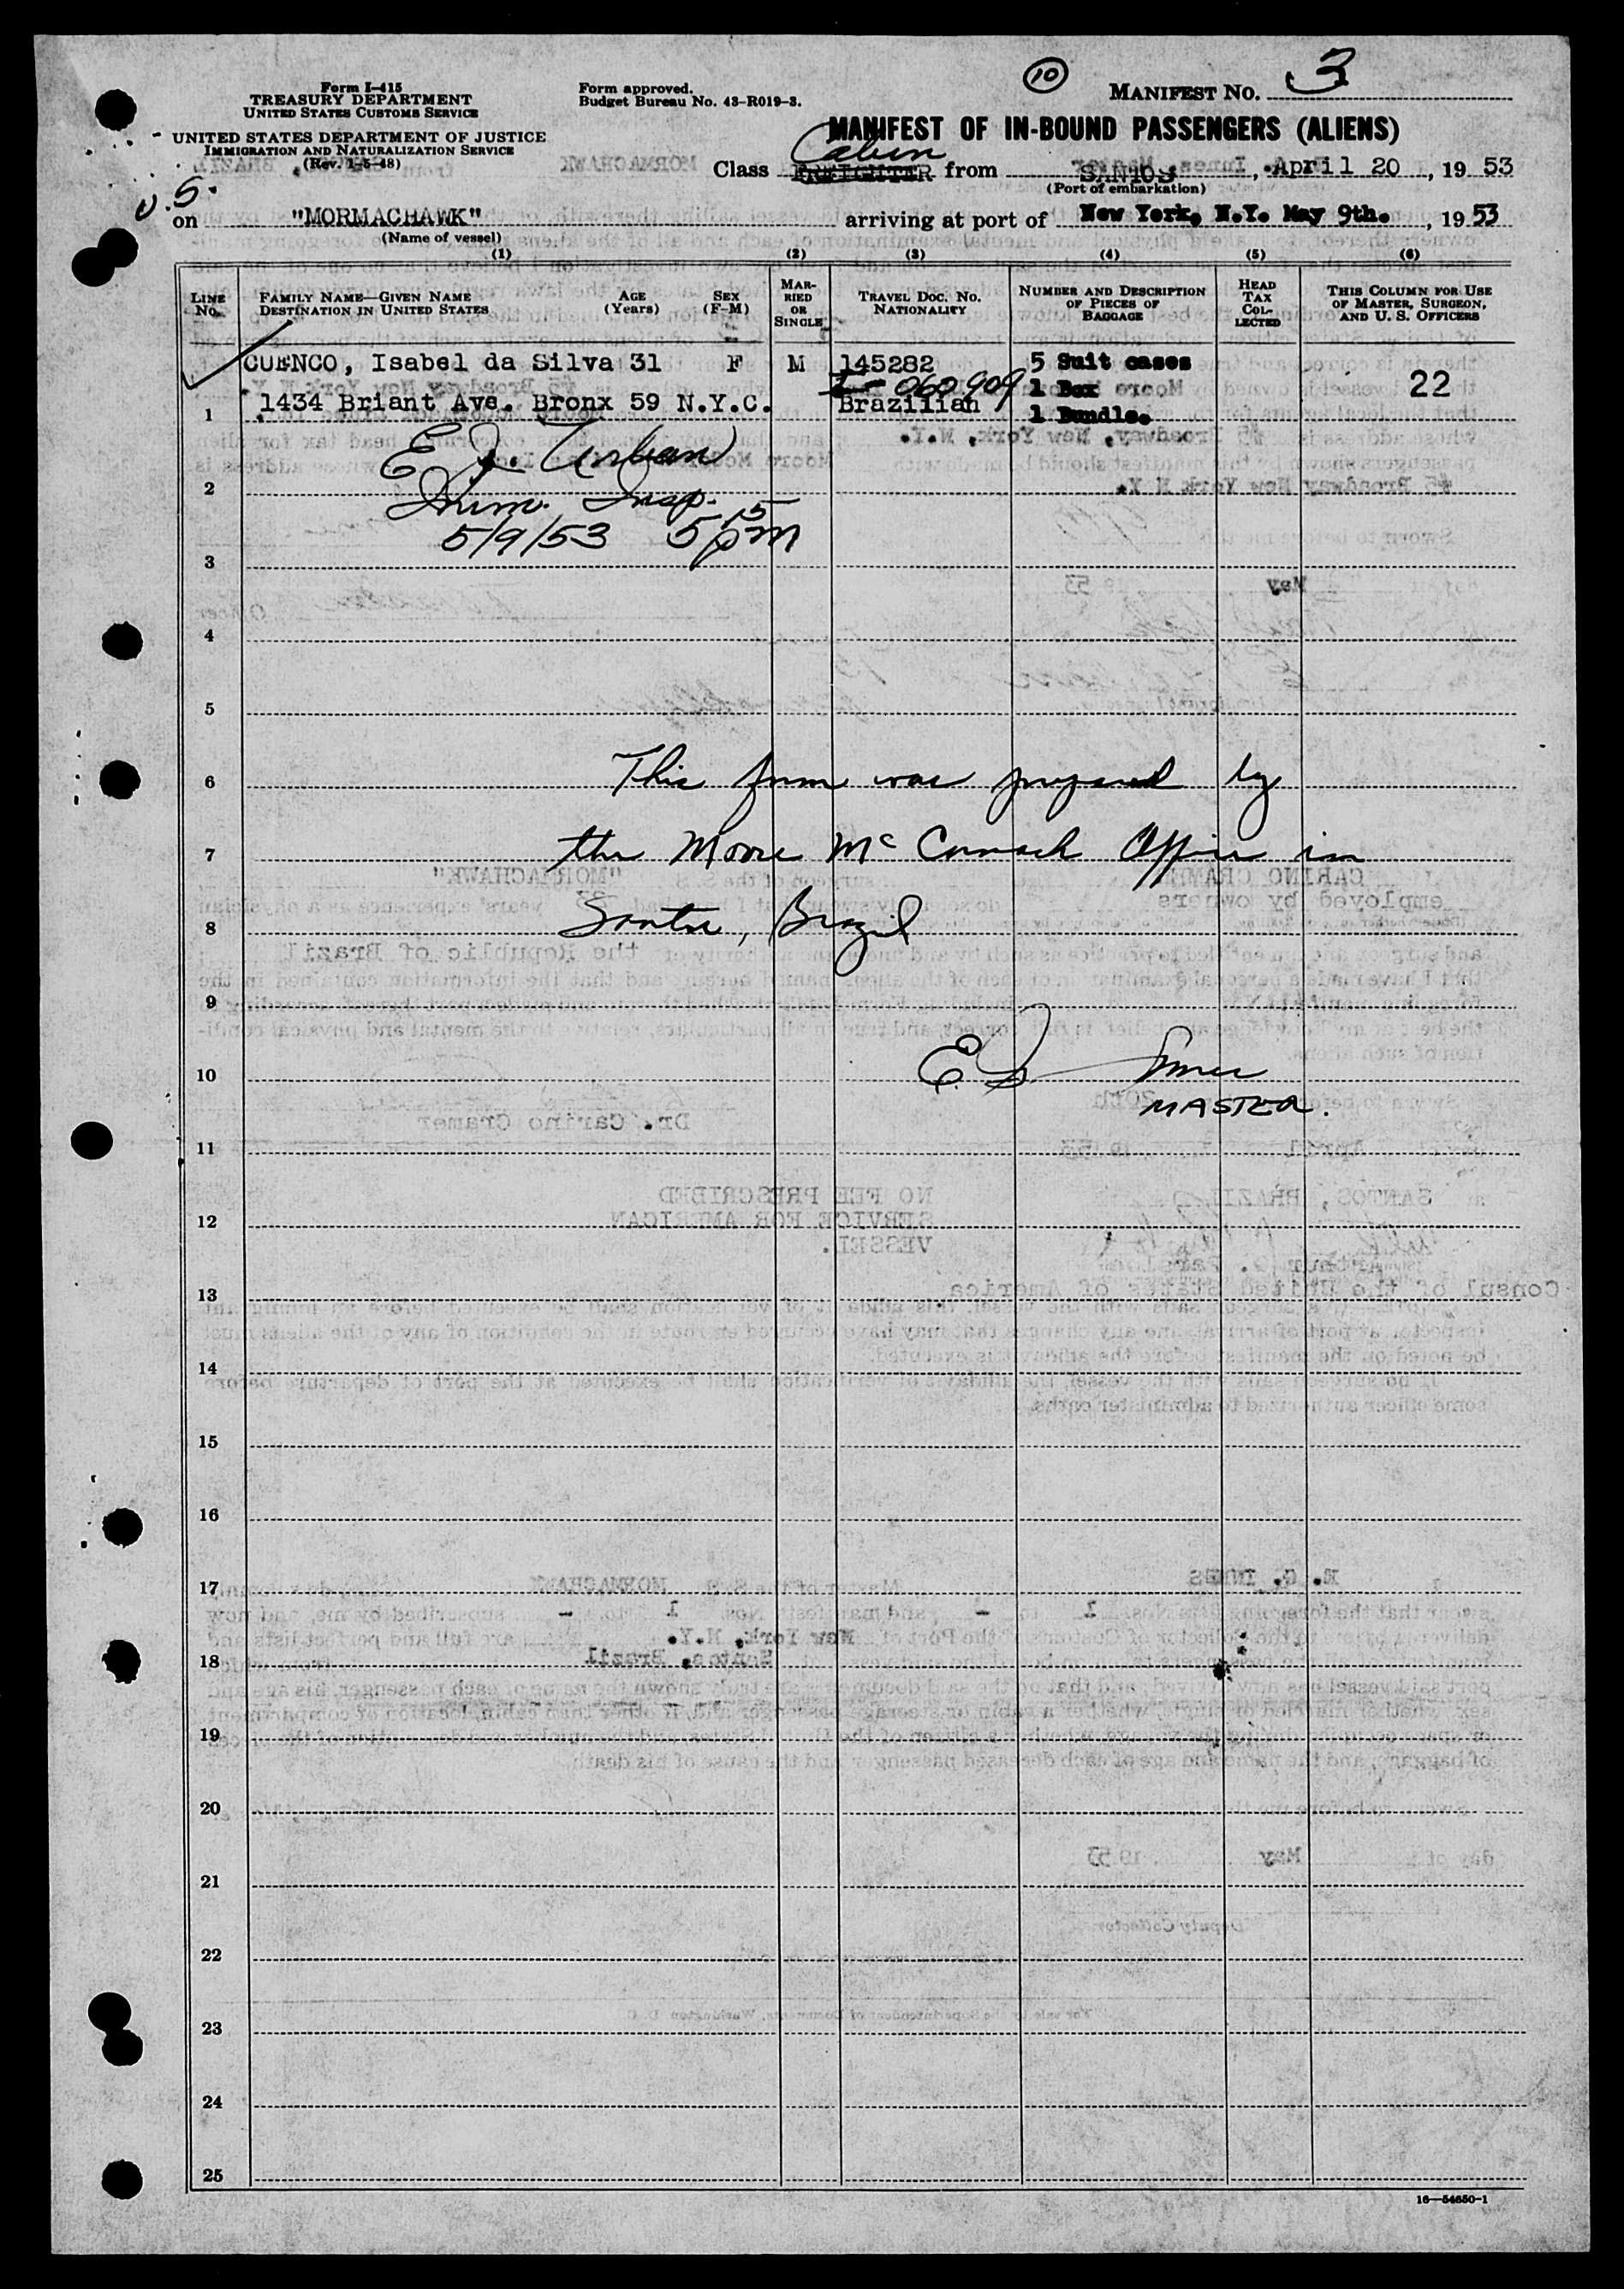 Form I-415
TREASURY DEPARTMENT
UNITED STATES CUSTOMS SERVICE
UNITED STATES DEPARTMENT OF JUSTICE
IMMIGRATION AND NATURALIZATION SERVICE
(Rev. 1-5-48)
Form approved.
Budget Bureau No. 43-R019-3.
10
MANIFEST No. 3
MANIFEST OF IN-BOUND PASSENGERS (ALIENS)
Cabin
Class FREIGHTER from SANTOS, April 20, 1953
(Port of embarkation)
U.S.
on "MORMACHAWK" arriving at port of New York, N.Y. May 9th., 1953
(Name of vessel)
(1) (2) (3) (4) (5) (6)
LINE No.
FAMILY NAME—GIVEN NAME
DESTINATION IN UNITED STATES
AGE (Years)
SEX (F-M)
MARRIED OR SINGLE
TRAVEL DOC. No.
NATIONALITY
NUMBER AND DESCRIPTION OF PIECES OF BAGGAGE
HEAD TAX COLLECTED
THIS COLUMN FOR USE OF MASTER, SURGEON, AND U. S. OFFICERS
CUENCO, Isabel da Silva 31 F M 145282 5 Suit cases
I-060909 1 Box 22
1 1434 Briant Ave. Bronx 59 N.Y.C. Brazilian 1 Bundle.
E. J. Urban
2
Imm. Insp.
5/9/53 5 15 pm
3
4
5
6 This form was prepared by
7 the Moore McCormack Office in
8 Santos, Brazil
9
10 E. G. Innes
MASTER.
11
12
13
14
15
16
17
18
19
20
21
22
23
24
25
16—54650-1